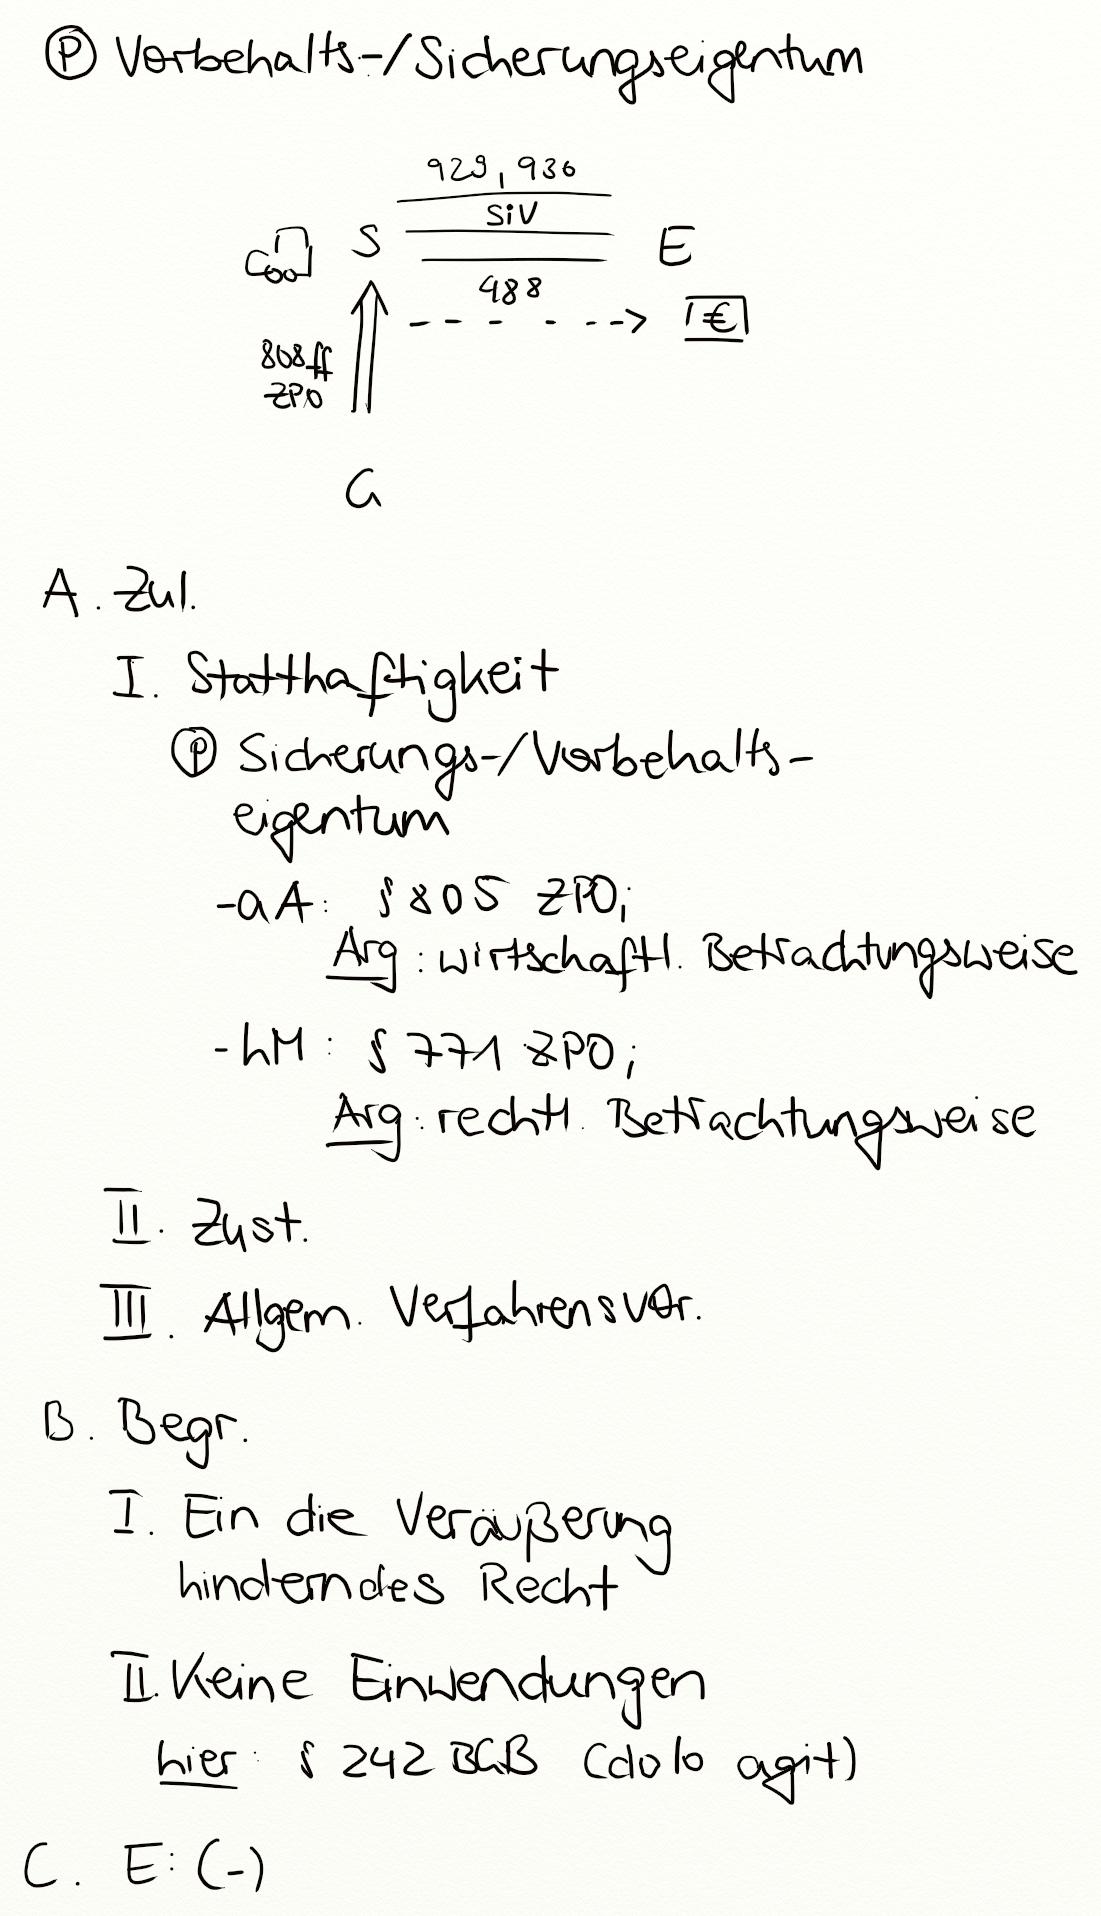 Ⓟ Vorbehalts-/Sicherungseigentum
929, 930
SiV
S
E
488
1€
808ff
ZPO
G
A. Zul.
I. Statthaftigkeit
Ⓟ Sicherungs-/Vorbehalts-
eigentum
-aA: § 805 ZPO;
Arg: wirtschaftl. Betrachtungsweise
-hM: § 771 ZPO;
Arg: rechtl. Betrachtungsweise
II. Zust.
III. Allgem. Verfahrensvor.
B. Begr.
I. Ein die Veräußerung
hinderndes Recht
II. Keine Einwendungen
hier: § 242 BGB (dolo agit)
C. E: (-)